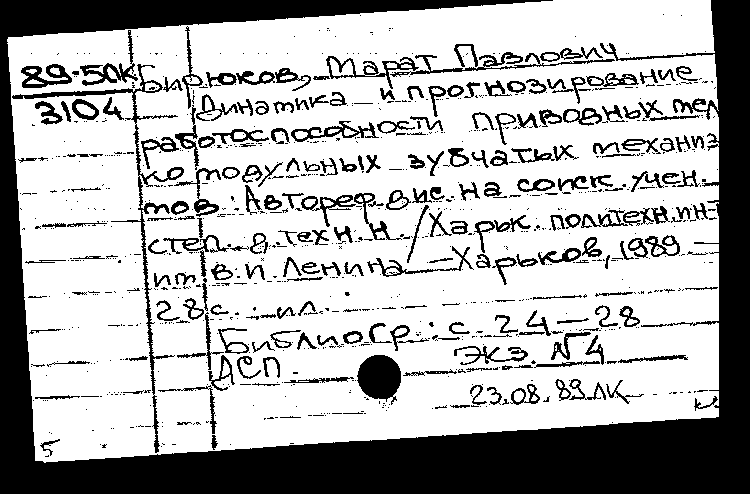 89-50К Бирюков, Марат Павлович
3104 Динамика и прогнозирование
работоспособности приводных мел
ко модульных зубчатых механиз
мов: Автореф. дис. на соиск. учен.
степ. д. техн. н. / Харьк. политехн. ин-т
им. В. И. Ленина. — Харьков, 1989 —
28 с. : ил.
Библиогр.: с. 24 — 28
ДСП. Экз. № 4
23.08.89 ЛК
5